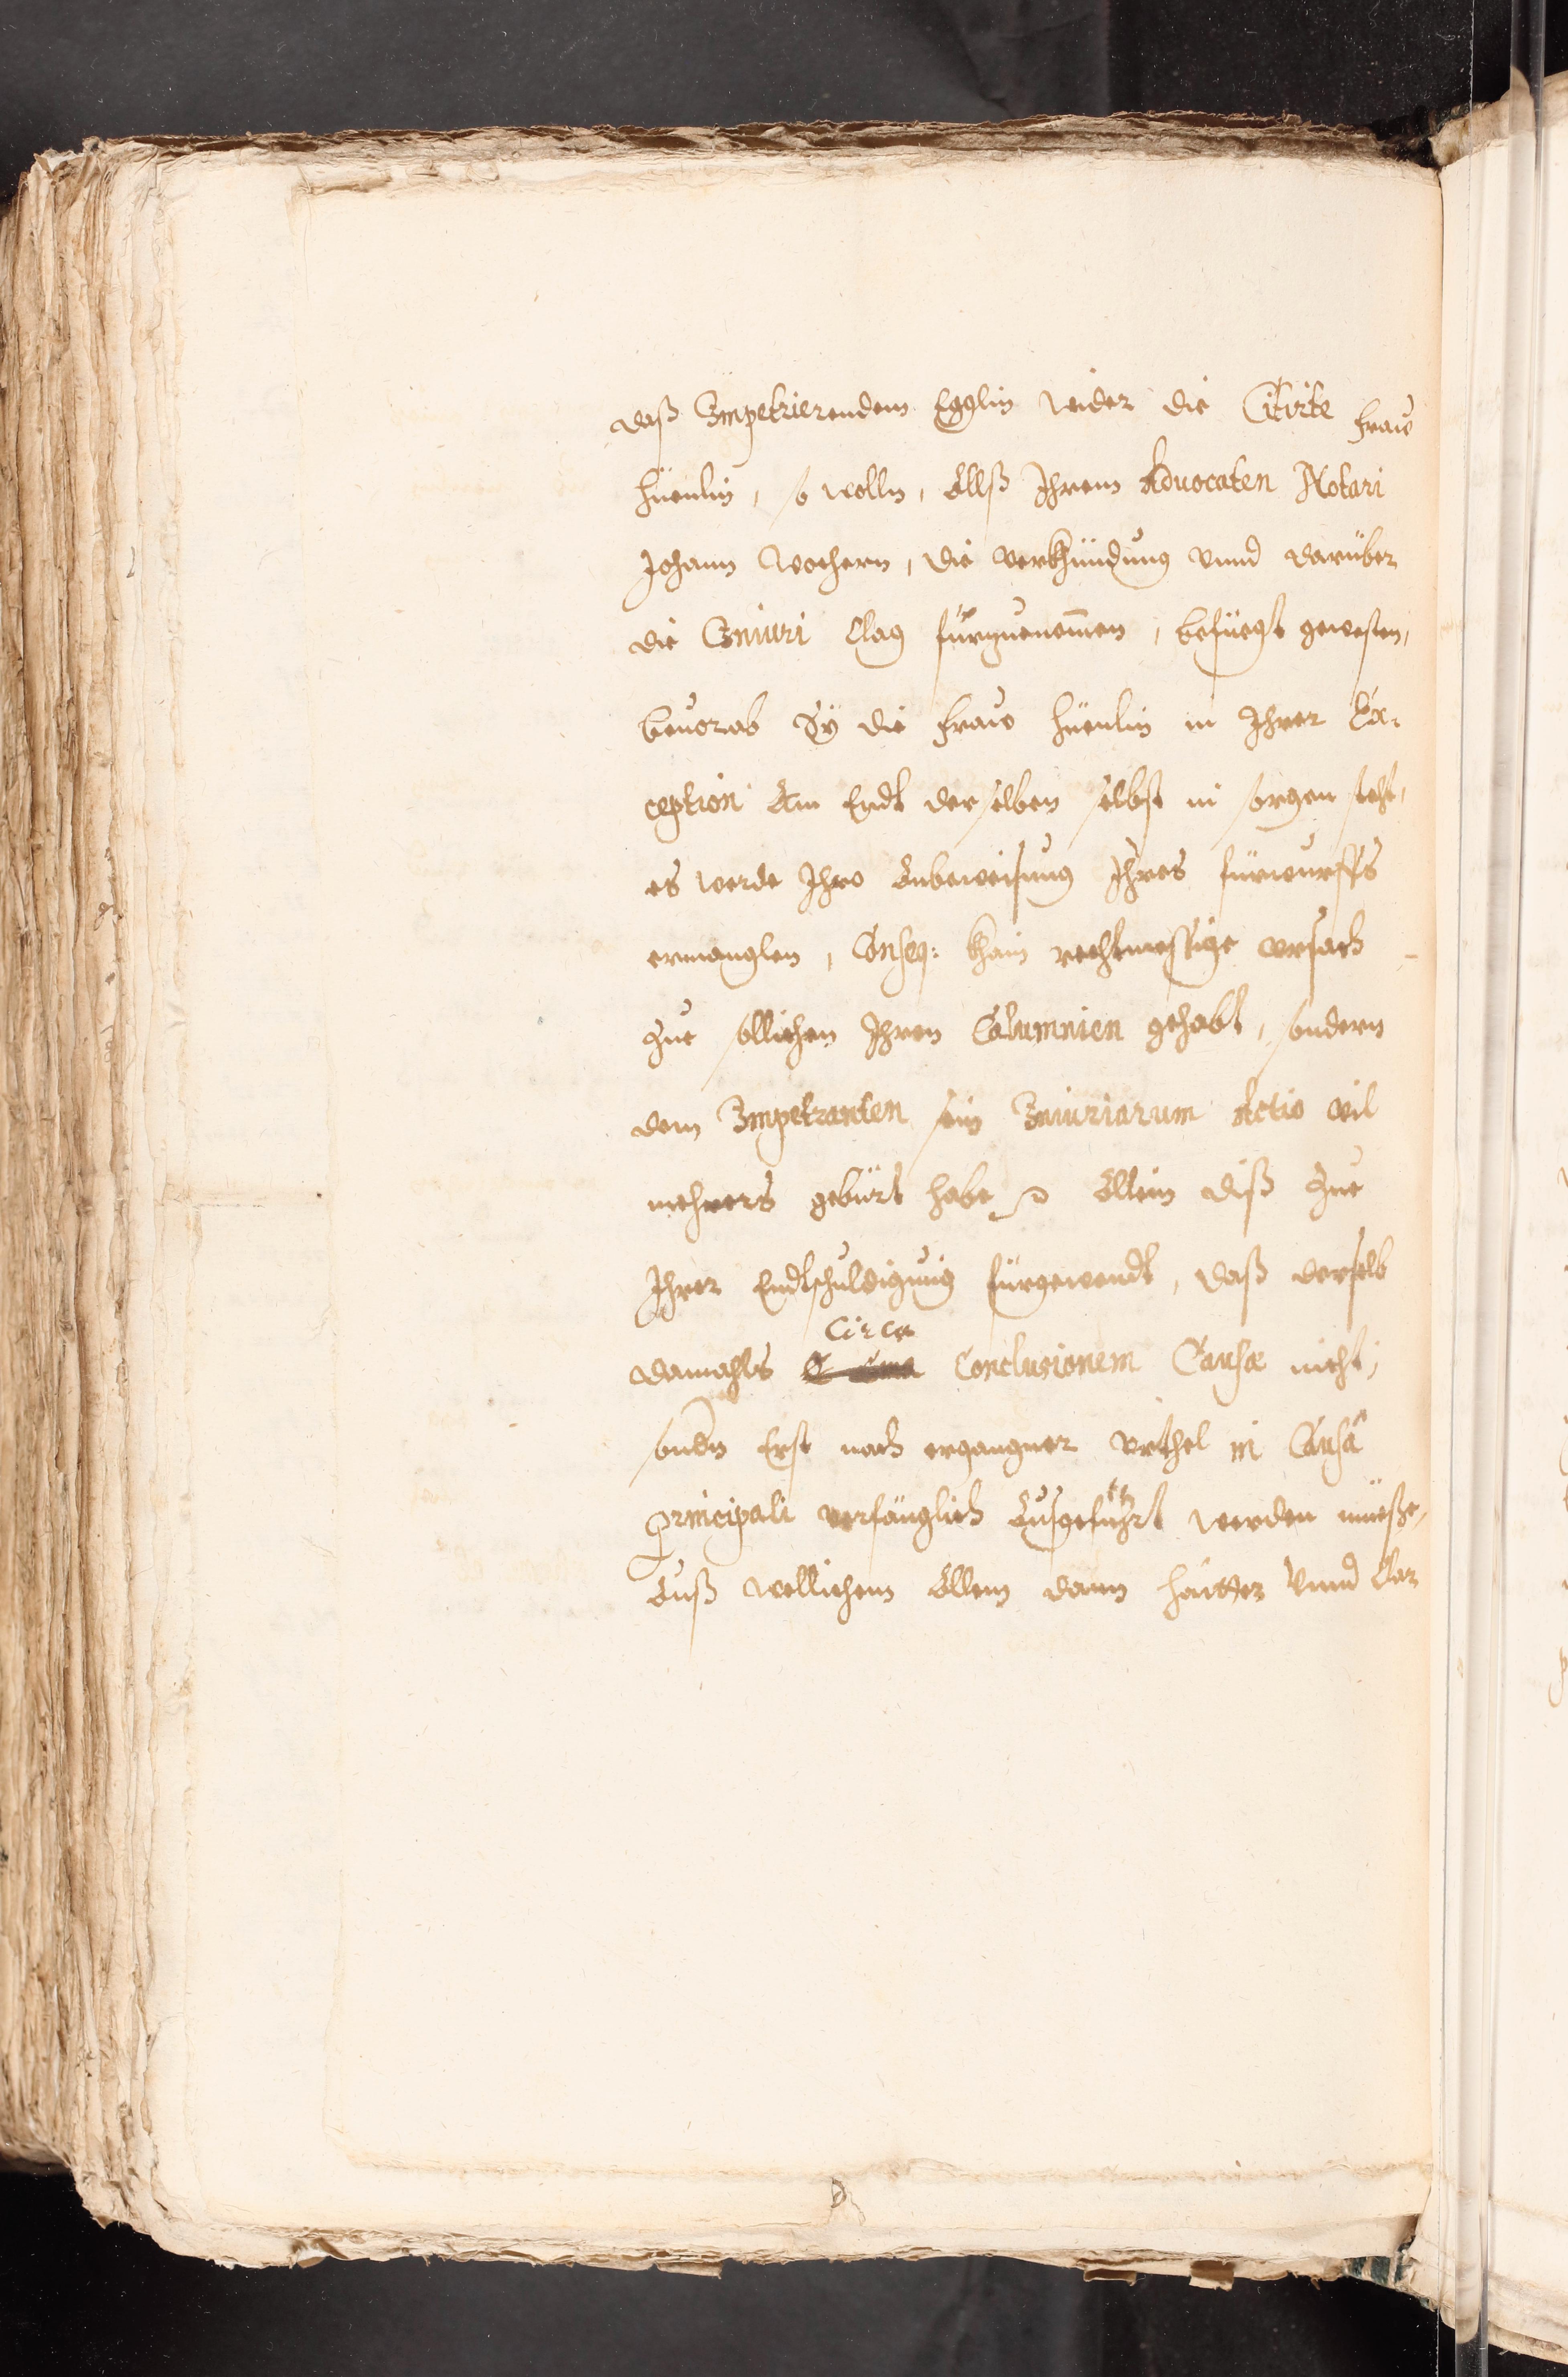 daß Impetrierendem Egglin wider die Citirte fraw
Hüenlin, so wolln, Allß Ihrem Aduocaten Notari
Johann Wochern, die verkhündung vnnd darüber
die Iniuri Clag fürzuenemmen, befüegt gewesten,
beuorab Sÿ die fraw Hüenlin in Ihrer Ex-
ception Am Endt derselben selbst in sorgen steht,
es werde Ihro Anbeweisung Ihres fürwurffs
ermanglen, Conseq: khain rechtmessige vrsach
zue sollichen Ihren Calumnien gehabt, sondern
dem Impetranten sein Iniuriarum Actio vil
mehrers gebürt habe Allein diß zue
Ihrer Endtschuldigung fürgewendt, daß derselb
damahls Circa Conclusionem Causæ nicht,
sondn Erst nach ergangner Vrthel in Causâ
principali verfänglich Ausgeführt werden müeße,
Auß wellichem Allem dann haitter Vnnd Clar